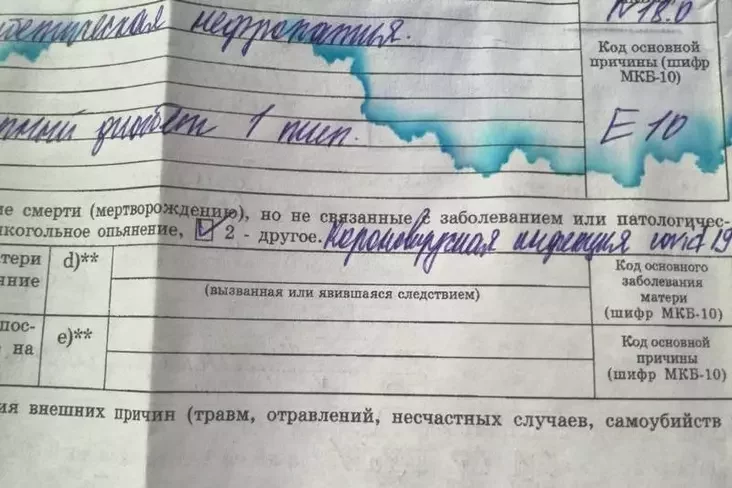 бетическая нефропатия. N 18.0
Код основной
причины (шифр
МКБ-10)
ный диабет 1 тип. E 10
ие смерти (мертворождению), но не связанные с заболеванием или патологичес-
лкогольное опьянение, 2 - другое. Короновирусная инфекция covid 19
атери d)**
яние
(вызванная или явившаяся следствием)
Код основного
заболевания
матери
(шифр МКБ-10)
пос- e)**
на
Код основной
причины
(шифр МКБ-10)
ия внешних причин (травм, отравлений, несчастных случаев, самоубийств